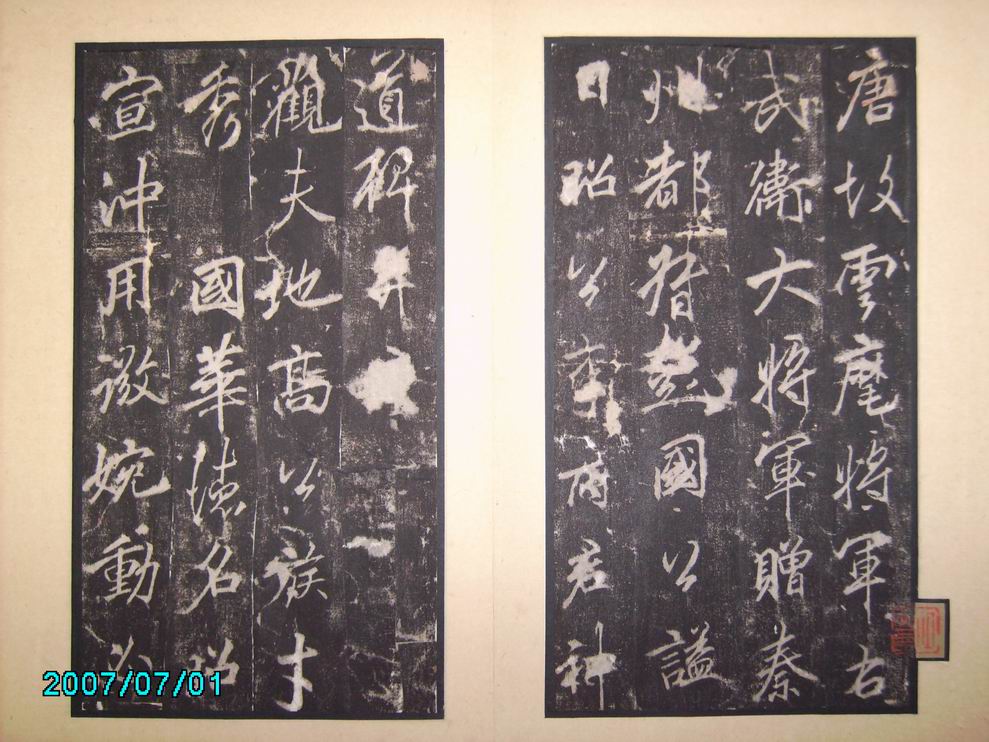 唐故雲麾將軍右
武衛大將軍贈秦
州都督彭國公謚
曰昭公李府君神
道碑并
觀夫地高公族才
秀國華德名昭
宣沖用微婉動必
2007/07/01